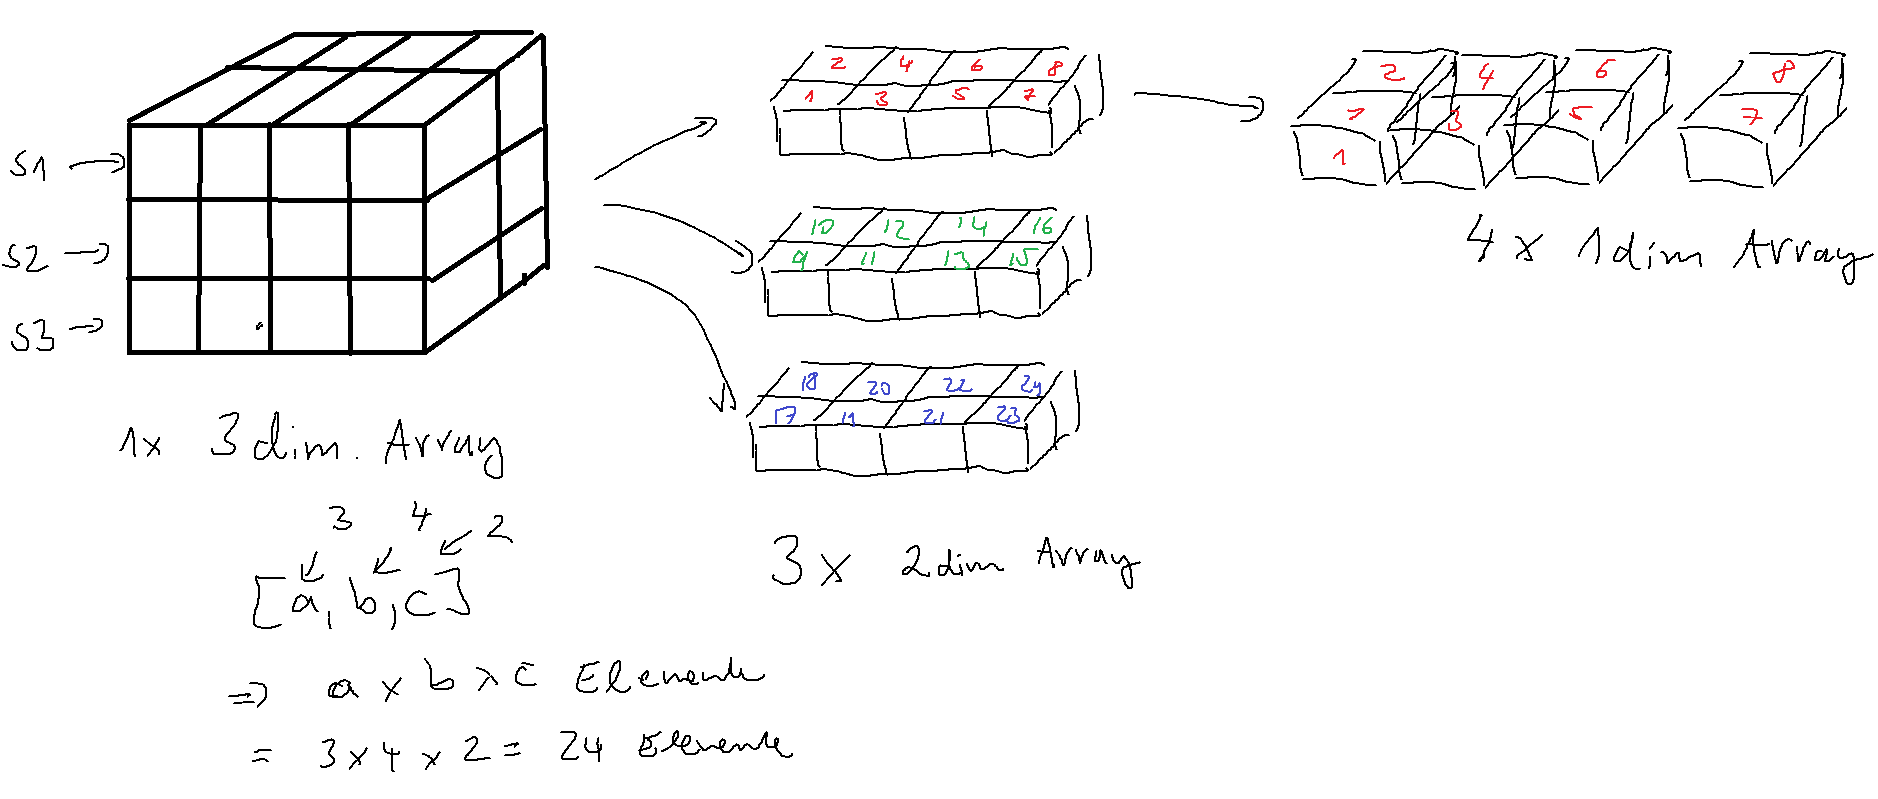 S1
S2
S3
1x 3 dim. Array
3 4 2
[a, b, c]
=> a x b x c Elemente
= 3 x 4 x 2 = 24 Elemente
2 4 6 8
1 3 5 7
10 12 14 16
9 11 13 15
18 20 22 24
17 19 21 23
3 x 2 dim Array
2 4 6 8
1 3 5 7
1
4 x 1 dim Array